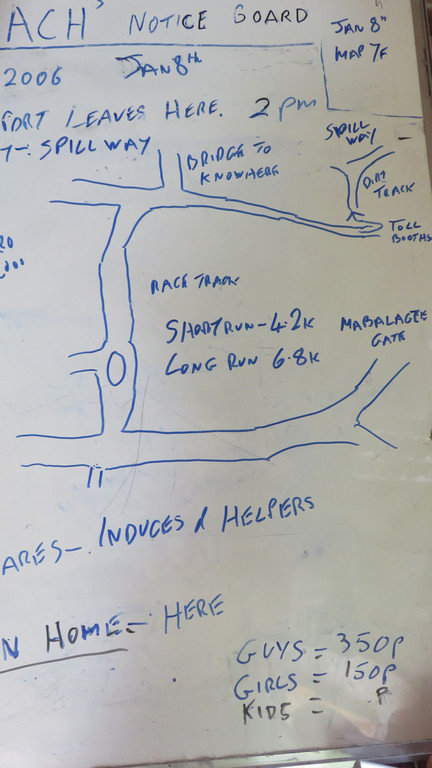 ACH' NOTICE BOARD
JAN 8"
MAP 7F
2006 JAN 8th
LEAVES HERE. 2 pm
SPILLWAY
SPILL
WAY
BRIDGE TO
KNOWHERE
DIRT
TRACK
TOLL
BOOTHS
RACE TRACK
SHORT RUN - 4.2K
LONG RUN 6.8K
MABALAGEE
GATE
ARES - INDUCES & HELPERS
N HOME = HERE
GUYS = 350P
GIRLS = 150P
KIDS = P